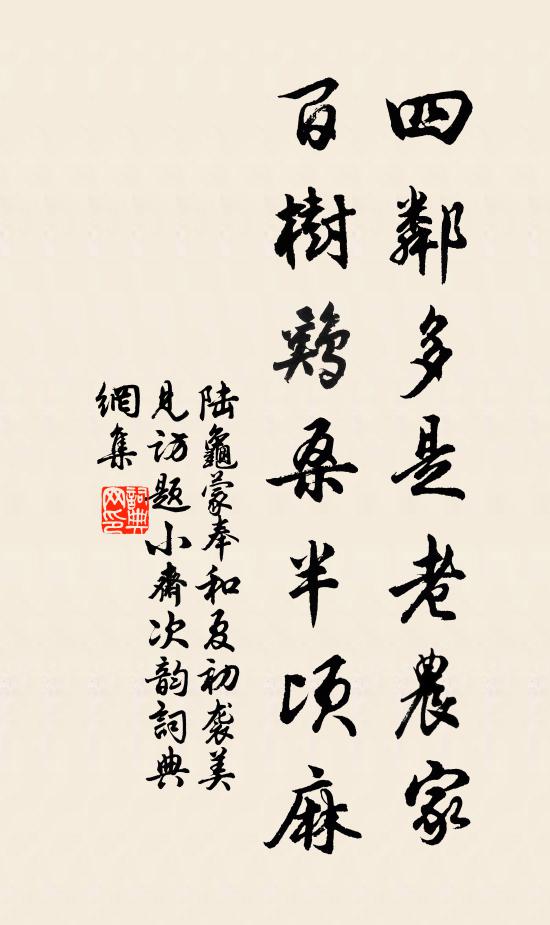 四鄰多是老農家
百樹鷄桑半頃麻
陸龜蒙奉和夏初袭美
見訪題小齋次韵詞典
網集
詞典
网印